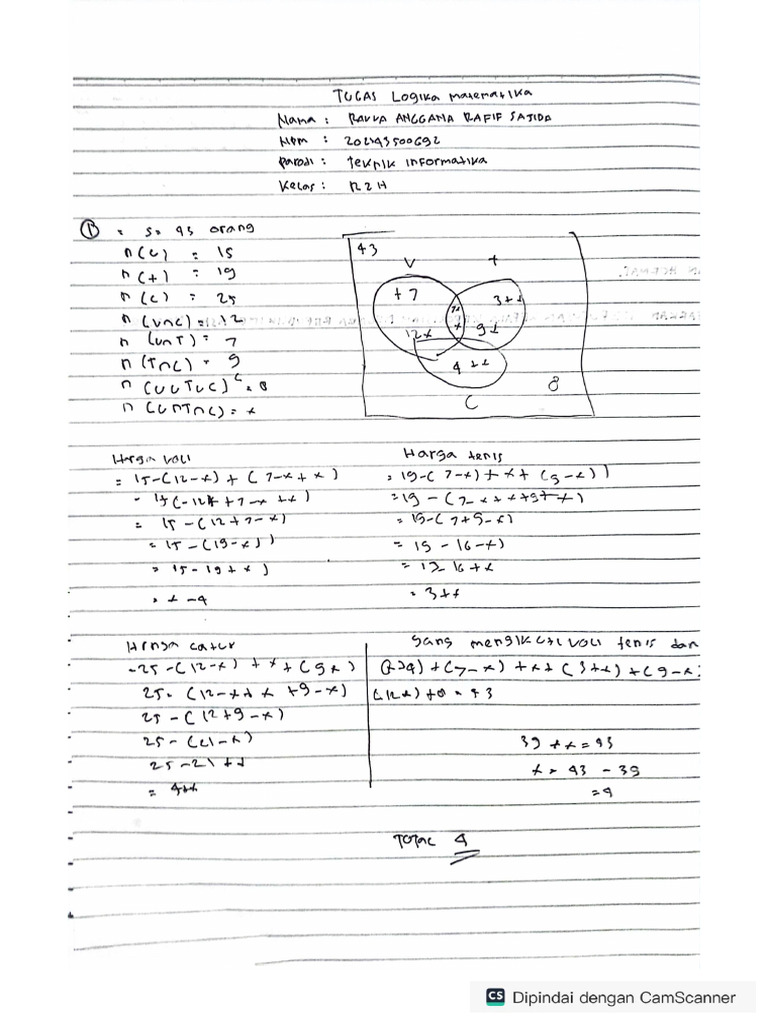 TUGAS Logika matematika
Nama : RAVVA ANGGANA RAFIF SAJIDA
NPM : 202143500692
Parodi : Teknik informatika
Kelas : R2H
① = S = 43 orang
n(v) = 15
n(t) = 19
n(c) = 25
n(vnc) = 12
n(vnT) = 7
n(Tnc) = 9
n(vuTuc)ᶜ = 8
n(vnTnc) = x
43
V
t
+7
3+x
7x
x
9x
12x
4+x
8
C
Hanya voli
= 15-(12-x)+(7-x+x)
= 15-(12+7-x)
= 15-(19-x)
= 15-19+x
= x-4
Hanya tenis
= 19-(7-x)+x+(9-x))
= 19-(7-x+x+9-x)
= 19-(7+9-x)
= 19-16-x)
= 19-16+x
= 3+x
Hanya catur
= 25-(12-x)+x+(9x)
25-(12-x+x+9-x)
25-(12+9-x)
25-(21-x)
25-21+x
= 4+x
Yang mengikuti voli tenis dan
(x-4)+(7-x)+x+(3+x)+(9-x)
(12x)+8=43
39+x=43
x=43-39
=4
TOTAL 4
CS Dipindai dengan CamScanner